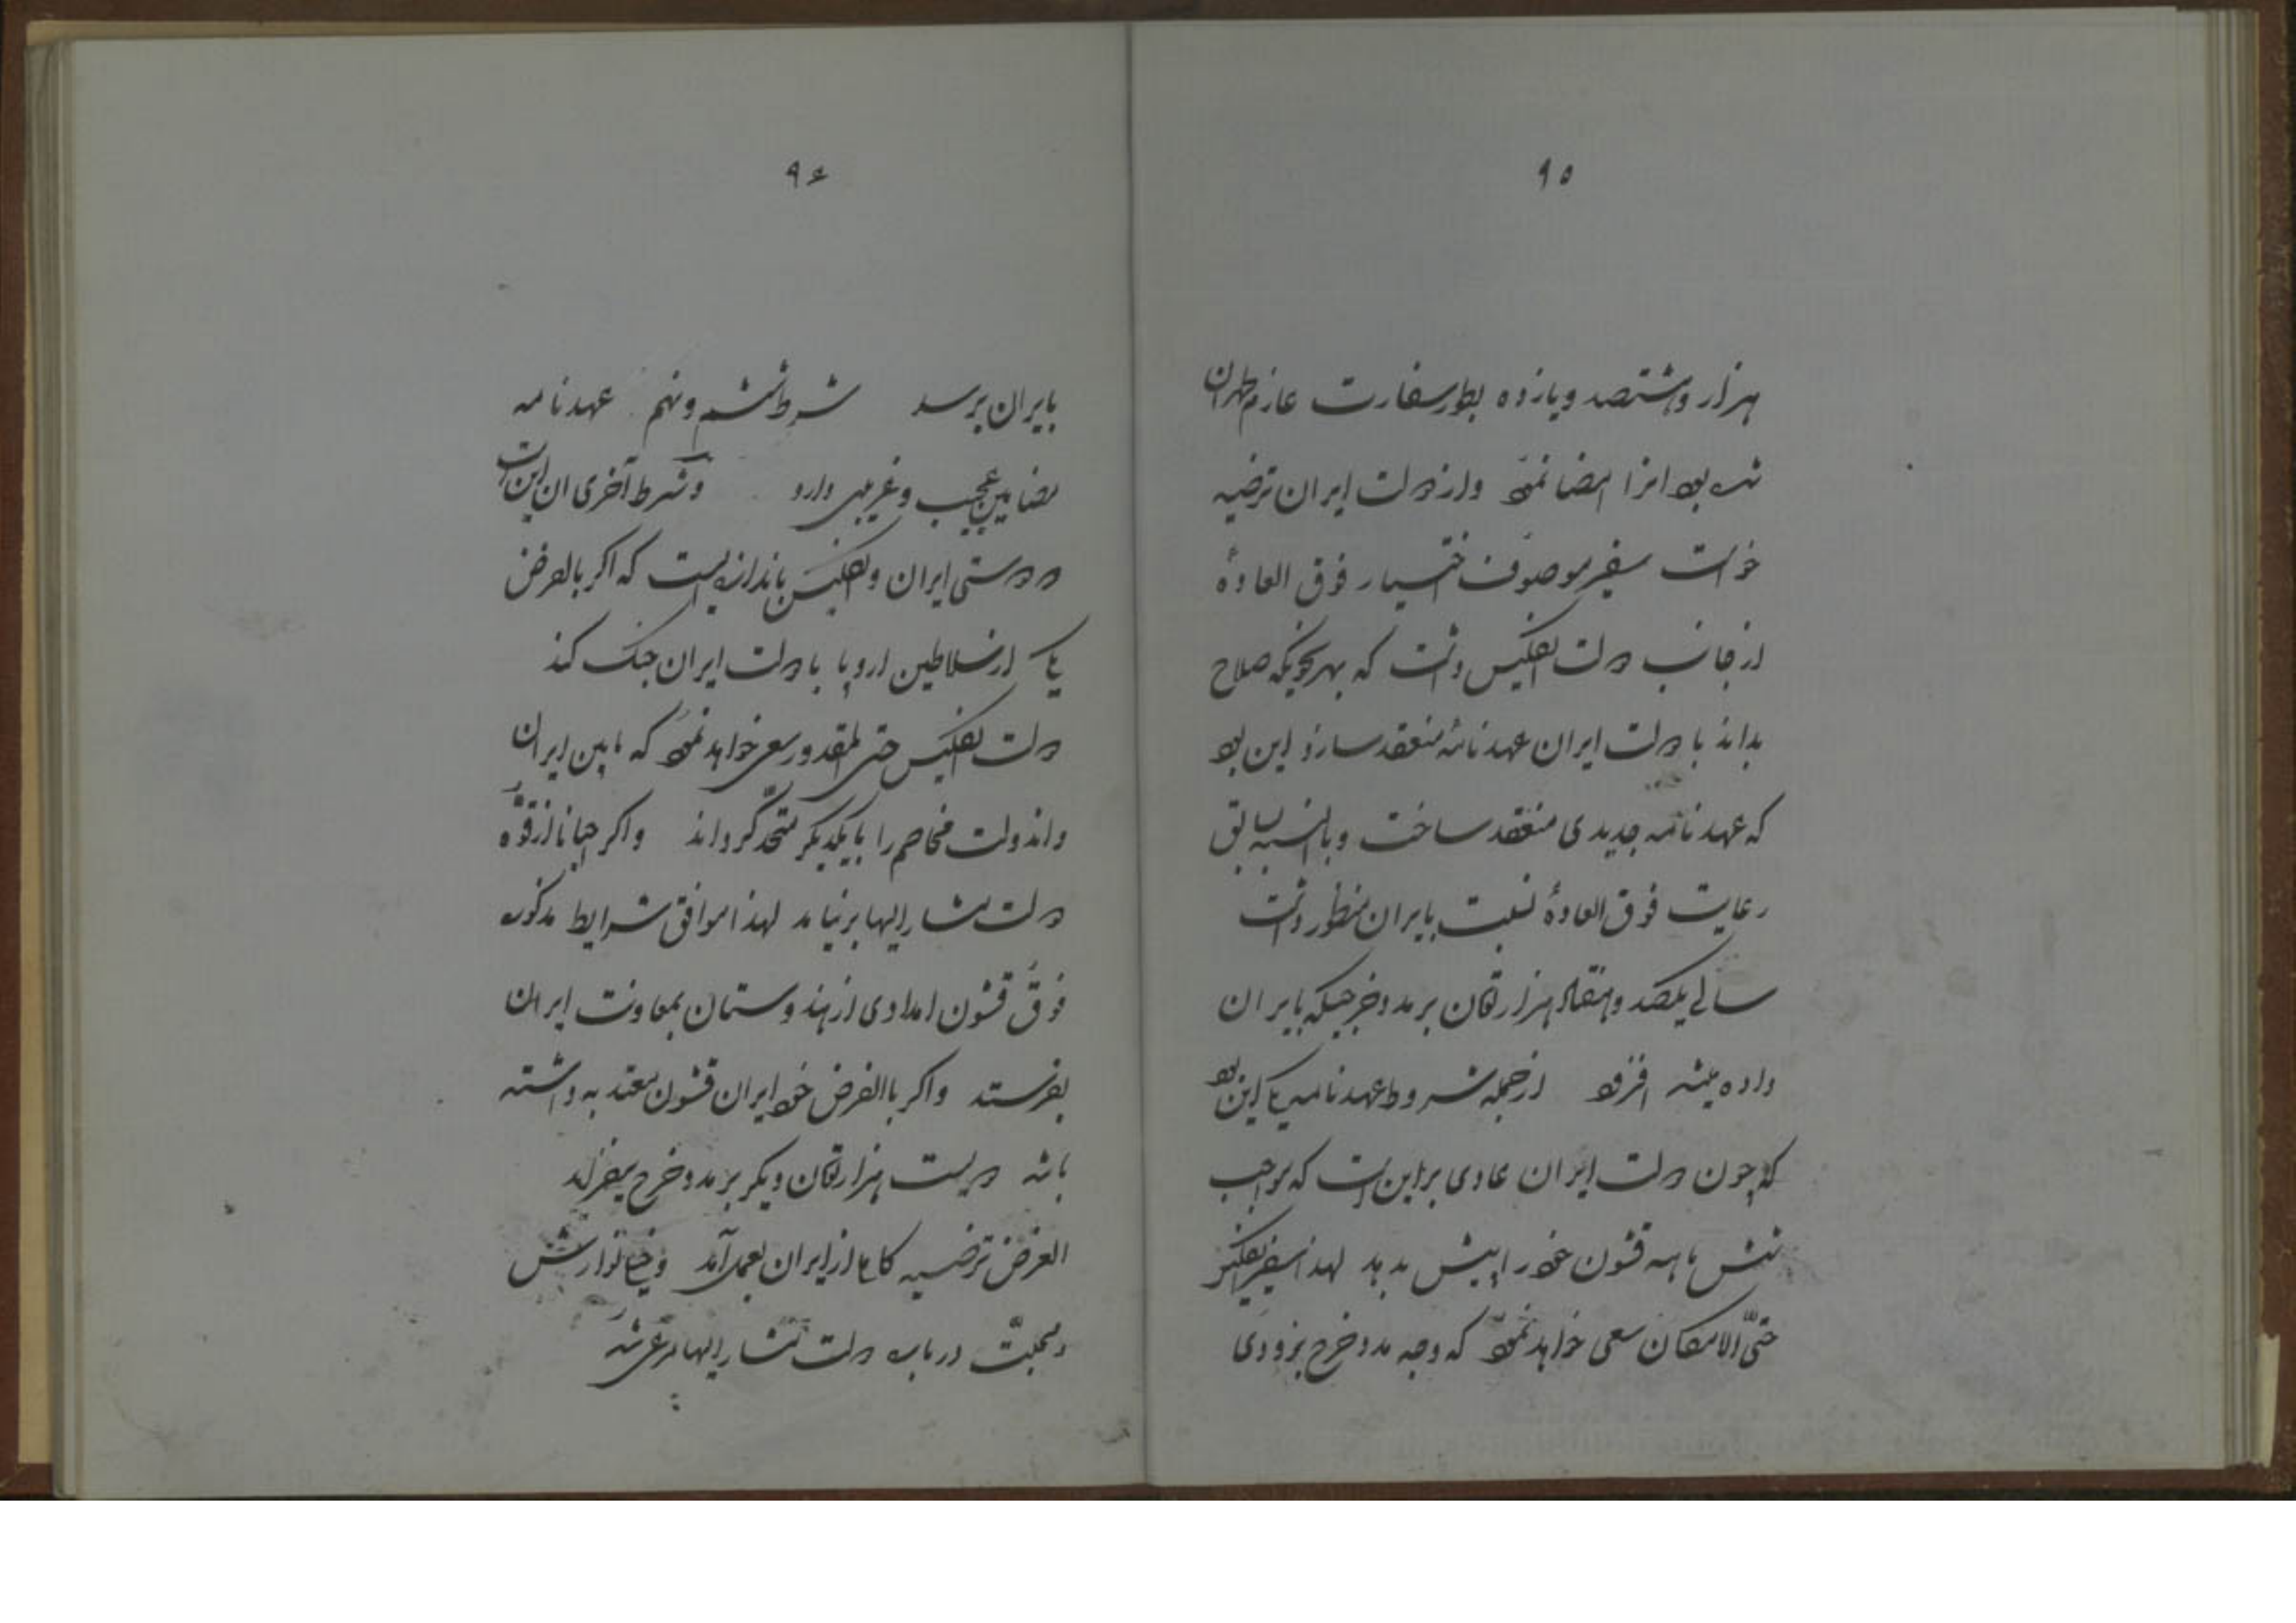 ۹۵
هزار و هشتصد و یازده بطور سفارت عازم طهران
شده بود انرا امضا نمود و از دولت ایران ترضیه
خواست سفیر موصوف اختیار فوق العادۀ
از جانب دولت انگلیس داشت که بهر نحویکه صلاح
بداند با دولت ایران عهدنامۀ منعقد سازد این بود
که عهدنامه جدیدی منعقد ساخت و بالنسبه بسابق
رعایت فوق العادۀ نسبت بایران منظور داشت
سالی یکصد و هفتاد هزار تومان بر مدد خرجیکه بایران
داده میشد افزود از جمله شروط عهدنامه یکی این بود
که چون دولت ایران عادی براین است که مواجب
شش ماهه قشون خود را پیش بدهد لهذا سفیر انگلیس
حتّی الامکان سعی خواهد نمود که وجه مدد خرج بزودی
۹۶
بایران برسد شرط ششم و نهم عهدنامه
مضامین عجیب و غریبی دارد و شرط آخری ان این است
دوستی ایران و انگلیس باندازه ایست که اگر بالفرض
یکی از سلاطین اروپا با دولت ایران جنک کند
دولت انگلیس حتی المقدور سعی خواهد نمود که مابین ایران
و اندولت مخاصم را با یکدیگر متّحد گرداند و اگر احیانا از قوّه
دولت مشار الیها برنیامد لهذا موافق شرایط مذکوره
فوق قشون امدادی از هندوستان بمعاونت ایران
بفرستد و اگر بالفرض خود ایران قشون معتد به داشته
باشد دویست هزار تومان دیگر بر مدد خرج بیفزاید
الغرض ترضیه کامل از ایران بعمل آمد و نوازش
و محبّت درباره دولت مشار الیها مرعی شد